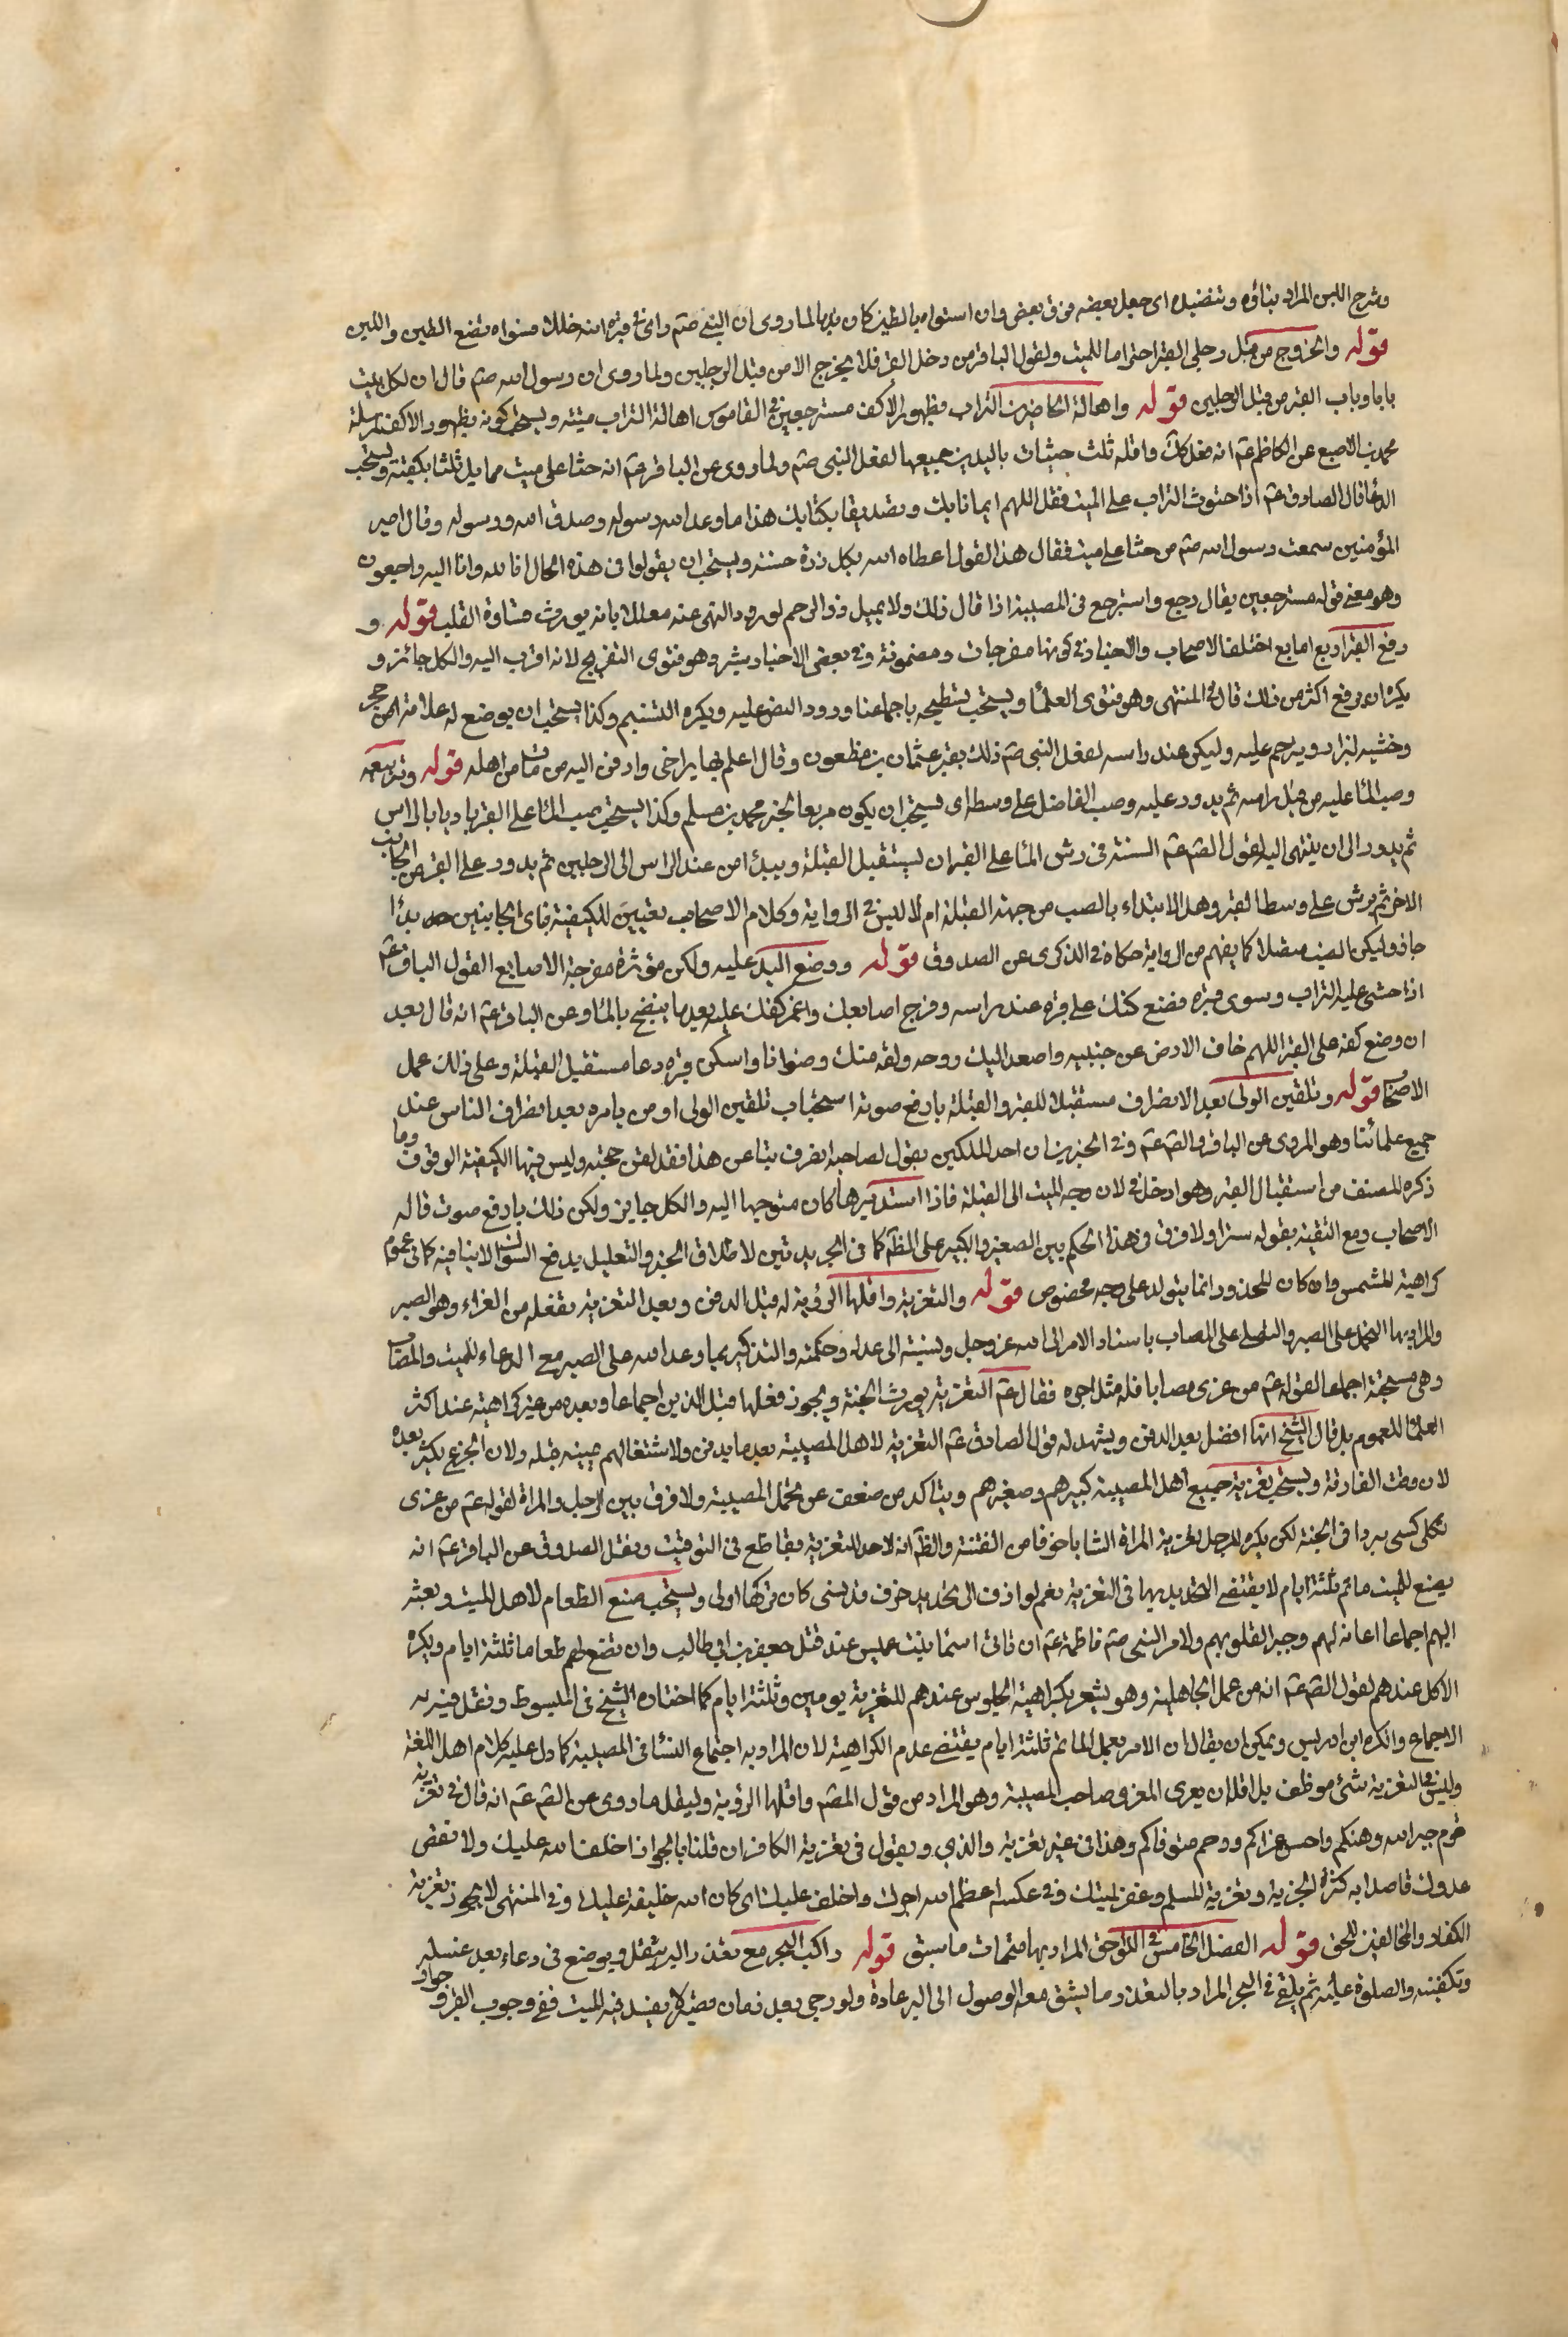 وشرج اللبن المراد بناؤه وتنضيده اى جعل بعضه فوق بعض وان استواه بالطين كان ندبا لما روى ان النبى صم راى فى قبره ابنه خللا فسواه بيده
قوله والخروج من قبل رجلى القبر احتراما للميت ولقول الباقر من دخل القبر فلا يخرج الا من قبل الرجلين ولما روى ان رسول الله صم قال ان لكل بيت
بابا وباب القبر من قبل الرجلين قوله واهالة الحاضرين التراب بظهور الاكف مسترجعين فى القاموس اهالة التراب صبه ويستحب كونه بظهور الاكف لمرسلة
محمد بن الاصبغ عن الكاظم عم انه فعل كك واقله ثلث حثيات باليدين جميعها لفعل النبى صم ولما روى عن الباقر عم انه حثا على ميت مما يلى ثلثا بكفيه ويستحب
الدعاء قال الصادق عم اذا حثوت التراب على الميت فقل اللهم ايمانا بك وتصديقا بكتابك هذا ما وعد الله ورسوله وصدق الله ورسوله وقال امير
المؤمنين سمعت رسول الله صم من حثا على ميت فقال هذا القول اعطاه الله بكل ذرة حسنة ويستحب ان يقولوا فى هذه الحال انا لله وانا اليه راجعون
وهو معنى قوله مسترجعين يقال رجع واسترجع فى المصيبة اذا قال ذلك ولا يهيل ذو الرحم لورود النهى عنه معللا بانه يورث قساوة القلب قوله و
رفع القبر اربع اصابع اختلف الاصحاب والاخبار فى كونها مفرجات ومضمومة وفى بعض الاخبار شبر وهو فتوى التفريج لانه اقرب اليه والكل جائز و
يكره ان يرفع اكثر من ذلك قال فى المنتهى وهو فتوى العلماء ويستحب تسطيحه باجماعنا ورود النص عليه ويكره التسنيم وكذا يستحب ان يوضع له علامة من حجر
وخشبة ليزار ويترحم عليه وليكن عند راسه لفعل النبى صم ذلك بقبر عثمان بن مظعون وقال اعلم بها براخى وادفن اليه من مات من اهله قوله وتربيعه
وصب الماء عليه من قبل راسه ثم يدور عليه وصب الفاضل على وسطه اى يستحب ان يكون مربعا لخبر محمد بن مسلم وكذا يستحب صب الماء على القبر باديا بالراس
ثم يدور الى ان ينتهى اليه لقول الصم عم السنة فى رش الماء على القبر ان يستقبل القبلة ويبدأ من عند الراس الى الرجلين ثم يدور على القبر من الجانب
الاخر ثم يرش على وسط القبر وهل الابتداء بالصب من جهة القبلة ام لا ليس فى الرواية وكلام الاصحاب تعيين للكيفية فاى الجانبين بدأ
جاز وليكن الصب متصلا كما يفهم من الرواية حكاه فى الذكرى عن الصدوق قوله ووضع اليد عليه ولكن مؤثرة مفرجة الاصابع لقول الباقر عم
اذا حثى عليه التراب وسوى قبره فضع كفك على قبره عند راسه وفرج اصابعك واغمز كفك عليه بعد ما ينضح بالماء وعن الباقر عم انه قال بعد
ان وضع كفه على القبر اللهم جاف الارض عن جنبيه واصعد اليك روحه ولقه منك رضوانا واسكن قبره دعا مستقبل القبلة وعلى ذلك عمل
الاصحاب قوله وتلقين الولى بعد الانصراف مستقبلا للقبر والقبلة بارفع صوته استحباب تلقين الولى او من يامره بعد انصراف الناس عند
جميع علمائنا وهو المروى عن الباقر والصم عم وفى الخبرين ان احد الملكين يقول لصاحبه انصرف بنا عن هذا فقد لقن حجته وليس فيها الكيفية الوقوف وما
ذكره المصنف من استقبال القبر وهو ادخل فى لان وجه الميت الى القبلة فاذا استدبرها كان متوجها اليه والكل جايز ولكن ذلك بارفع صوت قاله
الاصحاب ومع التقية يقوله سرا ولا فرق فى هذا الحكم بين الصغير والكبير على الظم كما فى الجريدتين لاطلاق الخبر والتعليل يدفع السؤال لا ينافيه كما فى عموم
كراهية المشمس وان كان المحذور انما يتولد على وجه مخصوص قوله والتعزية واقلها الرؤية له قبل الدفن وبعده التعزية تفعلة من العزاء وهو الصبر
والمراد بها الحمل على الصبر والتسلى على المصاب باسناد الامر الى الله عز وجل ونسبته الى عدله وحكمته والتذكير بما وعد الله على الصبر مع الدعاء للميت والمصاب
وهى مستحبة اجماعا لقوله عم من عزى مصابا فله مثل اجره فقال عم التعزية يورث الجنة ويجوز فعلها قبل الدفن اجماعا وبعده من غير كراهية عند اكثر
العلماء للعموم بل قال الشيخ انها افضل بعد الدفن ويشهد له قول الصادق عم التعزية لاهل المصيبة بعد ما يدفن ولاشتغالهم حينه قبله ولان الجزع يكثر بعده
لان وقت الفارقة ويستحب تعزية جميع اهل المصيبة كبيرهم وصغيرهم ويتاكد من ضعف عن تحمل المصيبة ولا فرق بين الرجل والمراة لقوله عم من عزى
ثكلى كسى بردا فى الجنة لكن يكره للرجل تعزية المراة الشابة خوفا من الفتنة والظم انه لا حد للتعزية بقاطع فى التوقيت ونقل الصدوق عن الباقر عم انه
يصنع للميت ماتم ثلثة ايام لا يقتضى التحديد بها فى التعزية نعم لو ادت الى تجديد حزن قد نسى كان تركها اولى ويستحب صنع الطعام لاهل الميت وبعثه
اليهم اجماعا اعانة لهم وجبر القلوبهم ولامر النبى صم فاطمة عم ان تاتى اسماء بنت عميس عند قتل جعفر بن ابى طالب وان تصنع لهم طعاما ثلثة ايام ويكره
الاكل عندهم لقول الصم عم انه من عمل الجاهلية وهو يشعر بكراهية الجلوس عندهم للتعزية يومين وثلثة ايام كما اختاره الشيخ فى المبسوط ونقل فيه
الاجماع وانكره ابن ادريس ويمكن ان يقال ان الامر بعمل الماتم ثلثة ايام يقتضى عدم الكراهية لان المراد به اجتماع النساء فى المصيبة كما دل عليه كلام اهل اللغة
وليس فى التعزية شئ موظف بل اقله ان يعرى المعزى صاحب المصيبة وهو المراد من قول المصم واقلها الرؤية وليقل ما روى عن الصم عم انه قال فى تعزية
قوم جبر الله وهنكم واحسن عزاكم ورحم متوفاكم وهذا فى غير تعزية والذى ويقول فى تعزية الكافر ان قلنا بالجواز اخلف الله عليك ولا نقص
عددك قاصدا به كثرة الجزية وتعزية المسلم وغفر لميتك وفى عكسه اعظم الله اجرك واخلف عليك اى كان الله خليفة عليك وفى المنتهى لا يجوز تعزية
الكفار والمخالفين للحق قوله الفصل الخامس فى اللواحق المراد بها متممات ما سبق قوله راكب البحر مع تعذر البر يثقل ويوضع فى وعاء بعد غسله
وتكفينه والصلوة عليه ثم يلقى فى البحر المراد بالتعذر ما يشق معه الوصول الى البر عادة ولو رجى بعد زمان قصير لا يفسد فيه الميت ففى وجوب الصبر وجواز